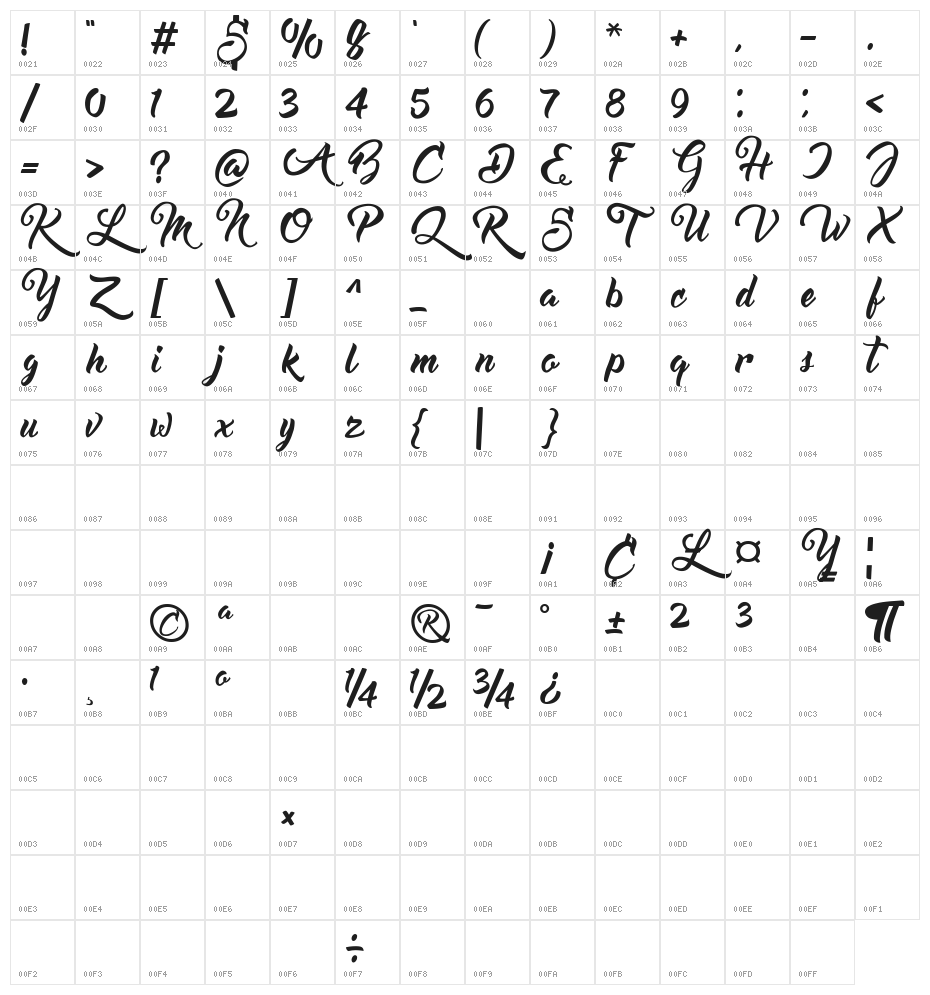 ! " # $ % & ' ( ) * + , - .
0021 0022 0023 0024 0025 0026 0027 0028 0029 002A 002B 002C 002D 002E
/ 0 1 2 3 4 5 6 7 8 9 : ; <
002F 0030 0031 0032 0033 0034 0035 0036 0037 0038 0039 003A 003B 003C
= > ? @ A B C D E F G H I J
003D 003E 003F 0040 0041 0042 0043 0044 0045 0046 0047 0048 0049 004A
K L M N O P Q R S T U V W X
004B 004C 004D 004E 004F 0050 0051 0052 0053 0054 0055 0056 0057 0058
Y Z [ \ ] ^ _ a b c d e f
0059 005A 005B 005C 005D 005E 005F 0060 0061 0062 0063 0064 0065 0066
g h i j k l m n o p q r s t
0067 0068 0069 006A 006B 006C 006D 006E 006F 0070 0071 0072 0073 0074
u v w x y z { | }
0075 0076 0077 0078 0079 007A 007B 007C 007D 007E 0080 0082 0084 0085
0086 0087 0088 0089 008A 008B 008C 008E 0091 0092 0093 0094 0095 0096
¡ ¢ £ ¤ ¥ ¦
0097 0098 0099 009A 009B 009C 009E 009F 00A1 00A2 00A3 00A4 00A5 00A6
© ª ® ¯ ° ± ² ³ ¶
00A7 00A8 00A9 00AA 00AB 00AC 00AE 00AF 00B0 00B1 00B2 00B3 00B4 00B6
· ¸ ¹ º ¼ ½ ¾ ¿
00B7 00B8 00B9 00BA 00BB 00BC 00BD 00BE 00BF 00C0 00C1 00C2 00C3 00C4
00C5 00C6 00C7 00C8 00C9 00CA 00CB 00CC 00CD 00CE 00CF 00D0 00D1 00D2
×
00D3 00D4 00D5 00D6 00D7 00D8 00D9 00DA 00DB 00DC 00DD 00E0 00E1 00E2
00E3 00E4 00E5 00E6 00E7 00E8 00E9 00EA 00EB 00EC 00ED 00EE 00EF 00F1
÷
00F2 00F3 00F4 00F5 00F6 00F7 00F8 00F9 00FA 00FB 00FC 00FD 00FF